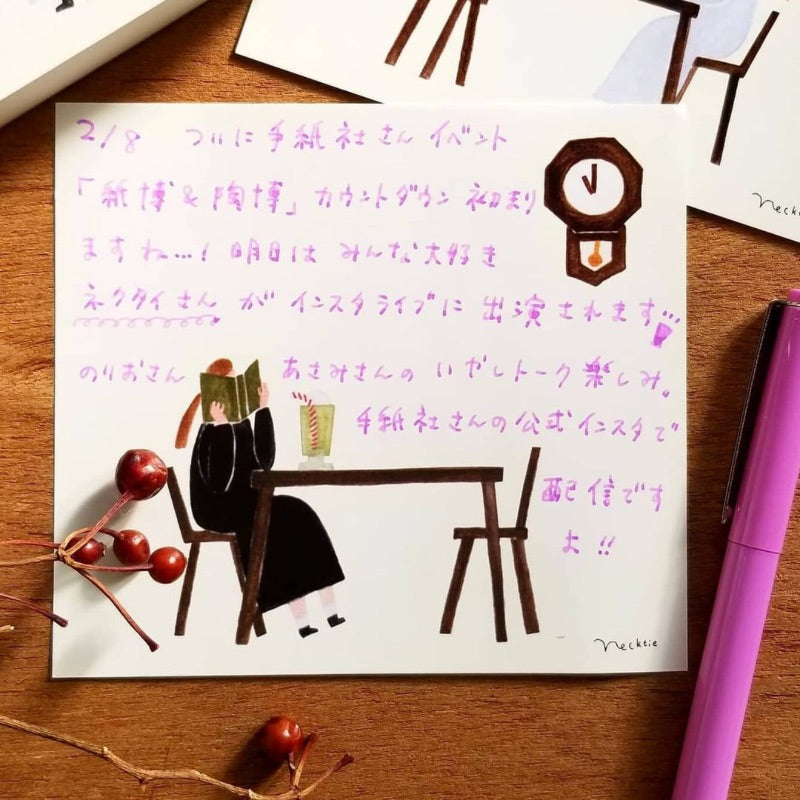 2/8 ついに手紙社さん イベント
「紙博 & 陶博」カウントダウン 初まり
ますね…! 明日は みんな大好き
ネクタイさん が インスタライブに 出演されます
のりおさん あさみさんの いやしトーク 楽しみ。
手紙社さんの公式インスタで
配信です
よ!!
Necktie